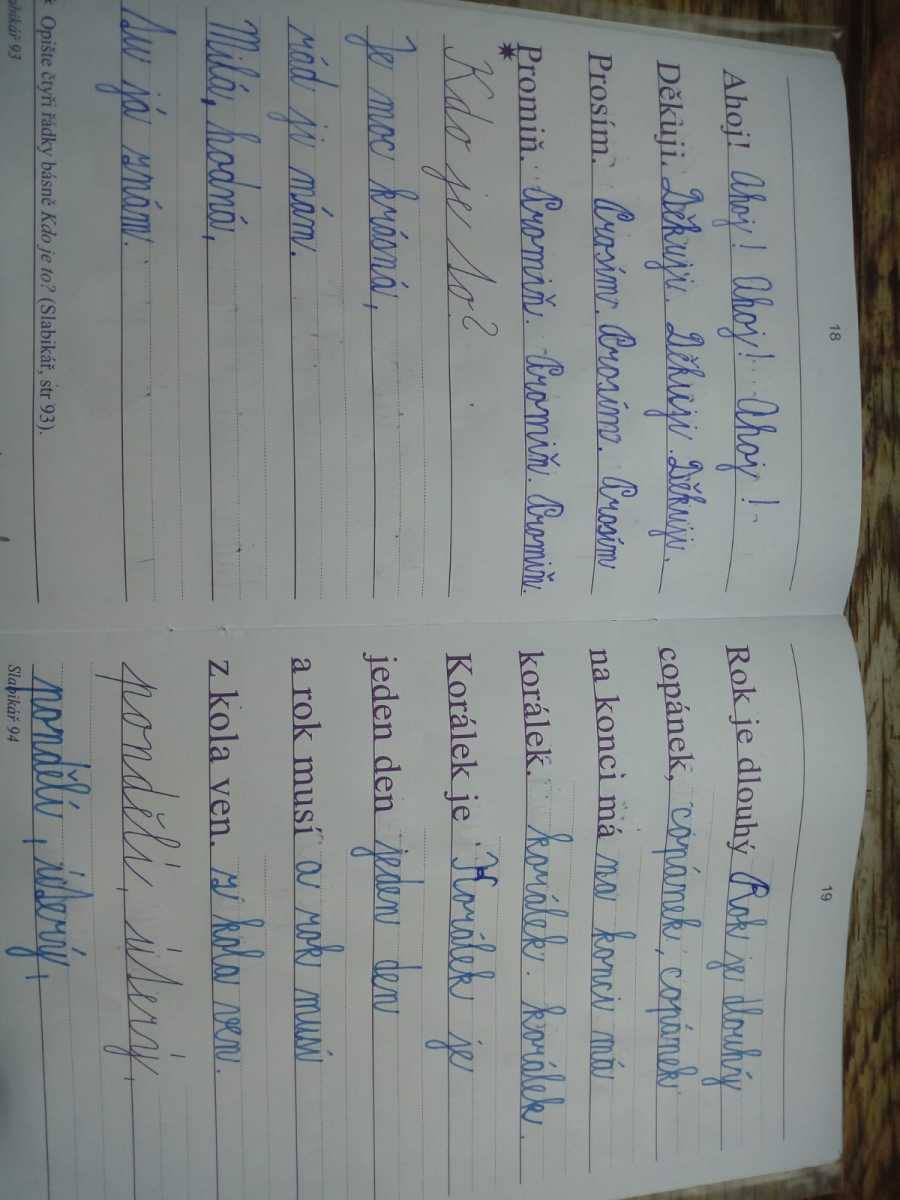 18
Ahoj! Ahoj! Ahoj! Ahoj!
Děkuji. Děkuji. Děkuji. Děkuji.
Prosím. Prosím. Prosím. Prosím
Promiň. Promiň. Promiň. Promiň.
Kdo je to?
Je moc krásná,
rád ji mám.
Milá, hodná,
tu já znám.
* Opište čtyři řádky básně Kdo je to? (Slabikář, str 93).
Slabikář 93
19
Rok je dlouhý Rok je dlouhý
copánek, copánek, copánek
na konci má na konci má
korálek. korálek. korálek.
Korálek je Korálek je
jeden den jeden den
a rok musí a rok musí
z kola ven. z kola ven.
pondělí, úterý,
pondělí, úterý,
Slabikář 94